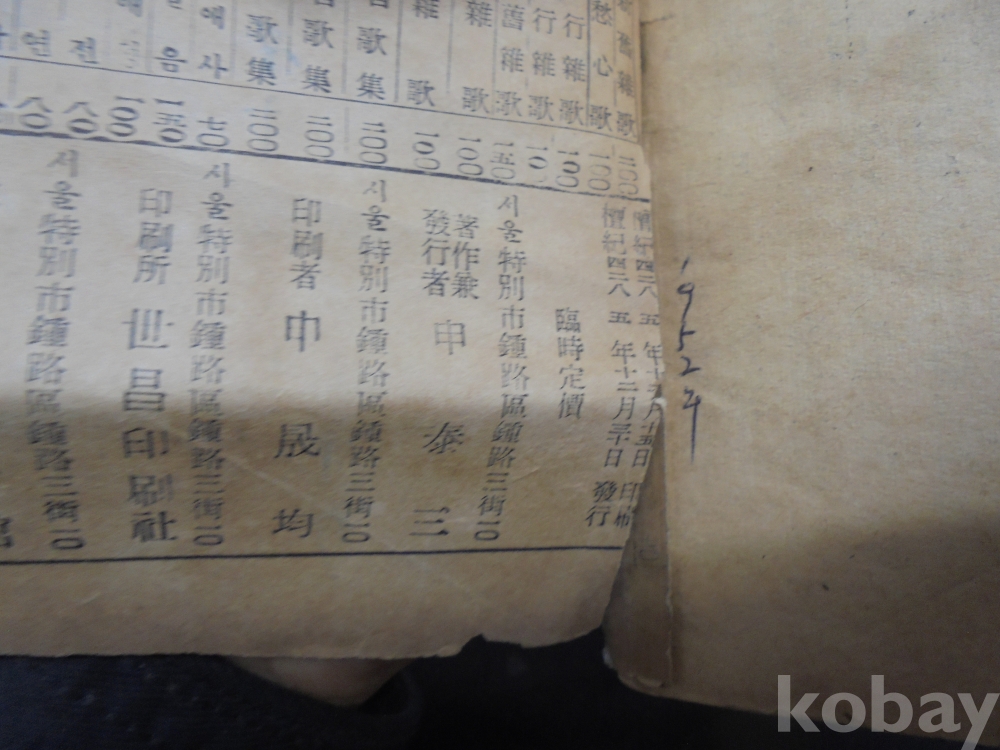 雜歌 二〇〇
愁心歌 一〇〇
行雜歌 一〇〇
行雜歌
舊雜歌 一五〇
雜歌 一〇〇
雜歌 一〇〇
歌集 二〇〇
歌集 二〇〇
歌集 二〇〇
애사 七〇
음 一五〇
一〇〇
전 八〇
연 八〇
檀紀四二八五年十二月十五日 印刷
檀紀四二八五年十二月三十日 發行
臨時定價
서울特別市鍾路區鍾路三街一〇
著作兼
發行者 申泰三
서울特別市鍾路區鍾路三街一〇
印刷者 申晟均
서울特別市鍾路區鍾路三街一〇
印刷所 世昌印刷社
서울特別市鍾路區鍾路三街一〇
1952年
kobay